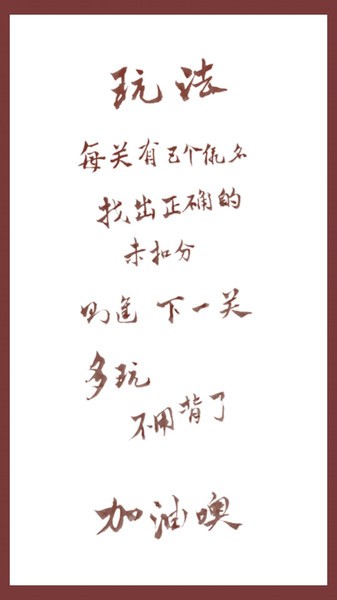 玩法
每关有个名
找出正确的
未扣分
则進 下一关
多玩
不用背了
加油噢